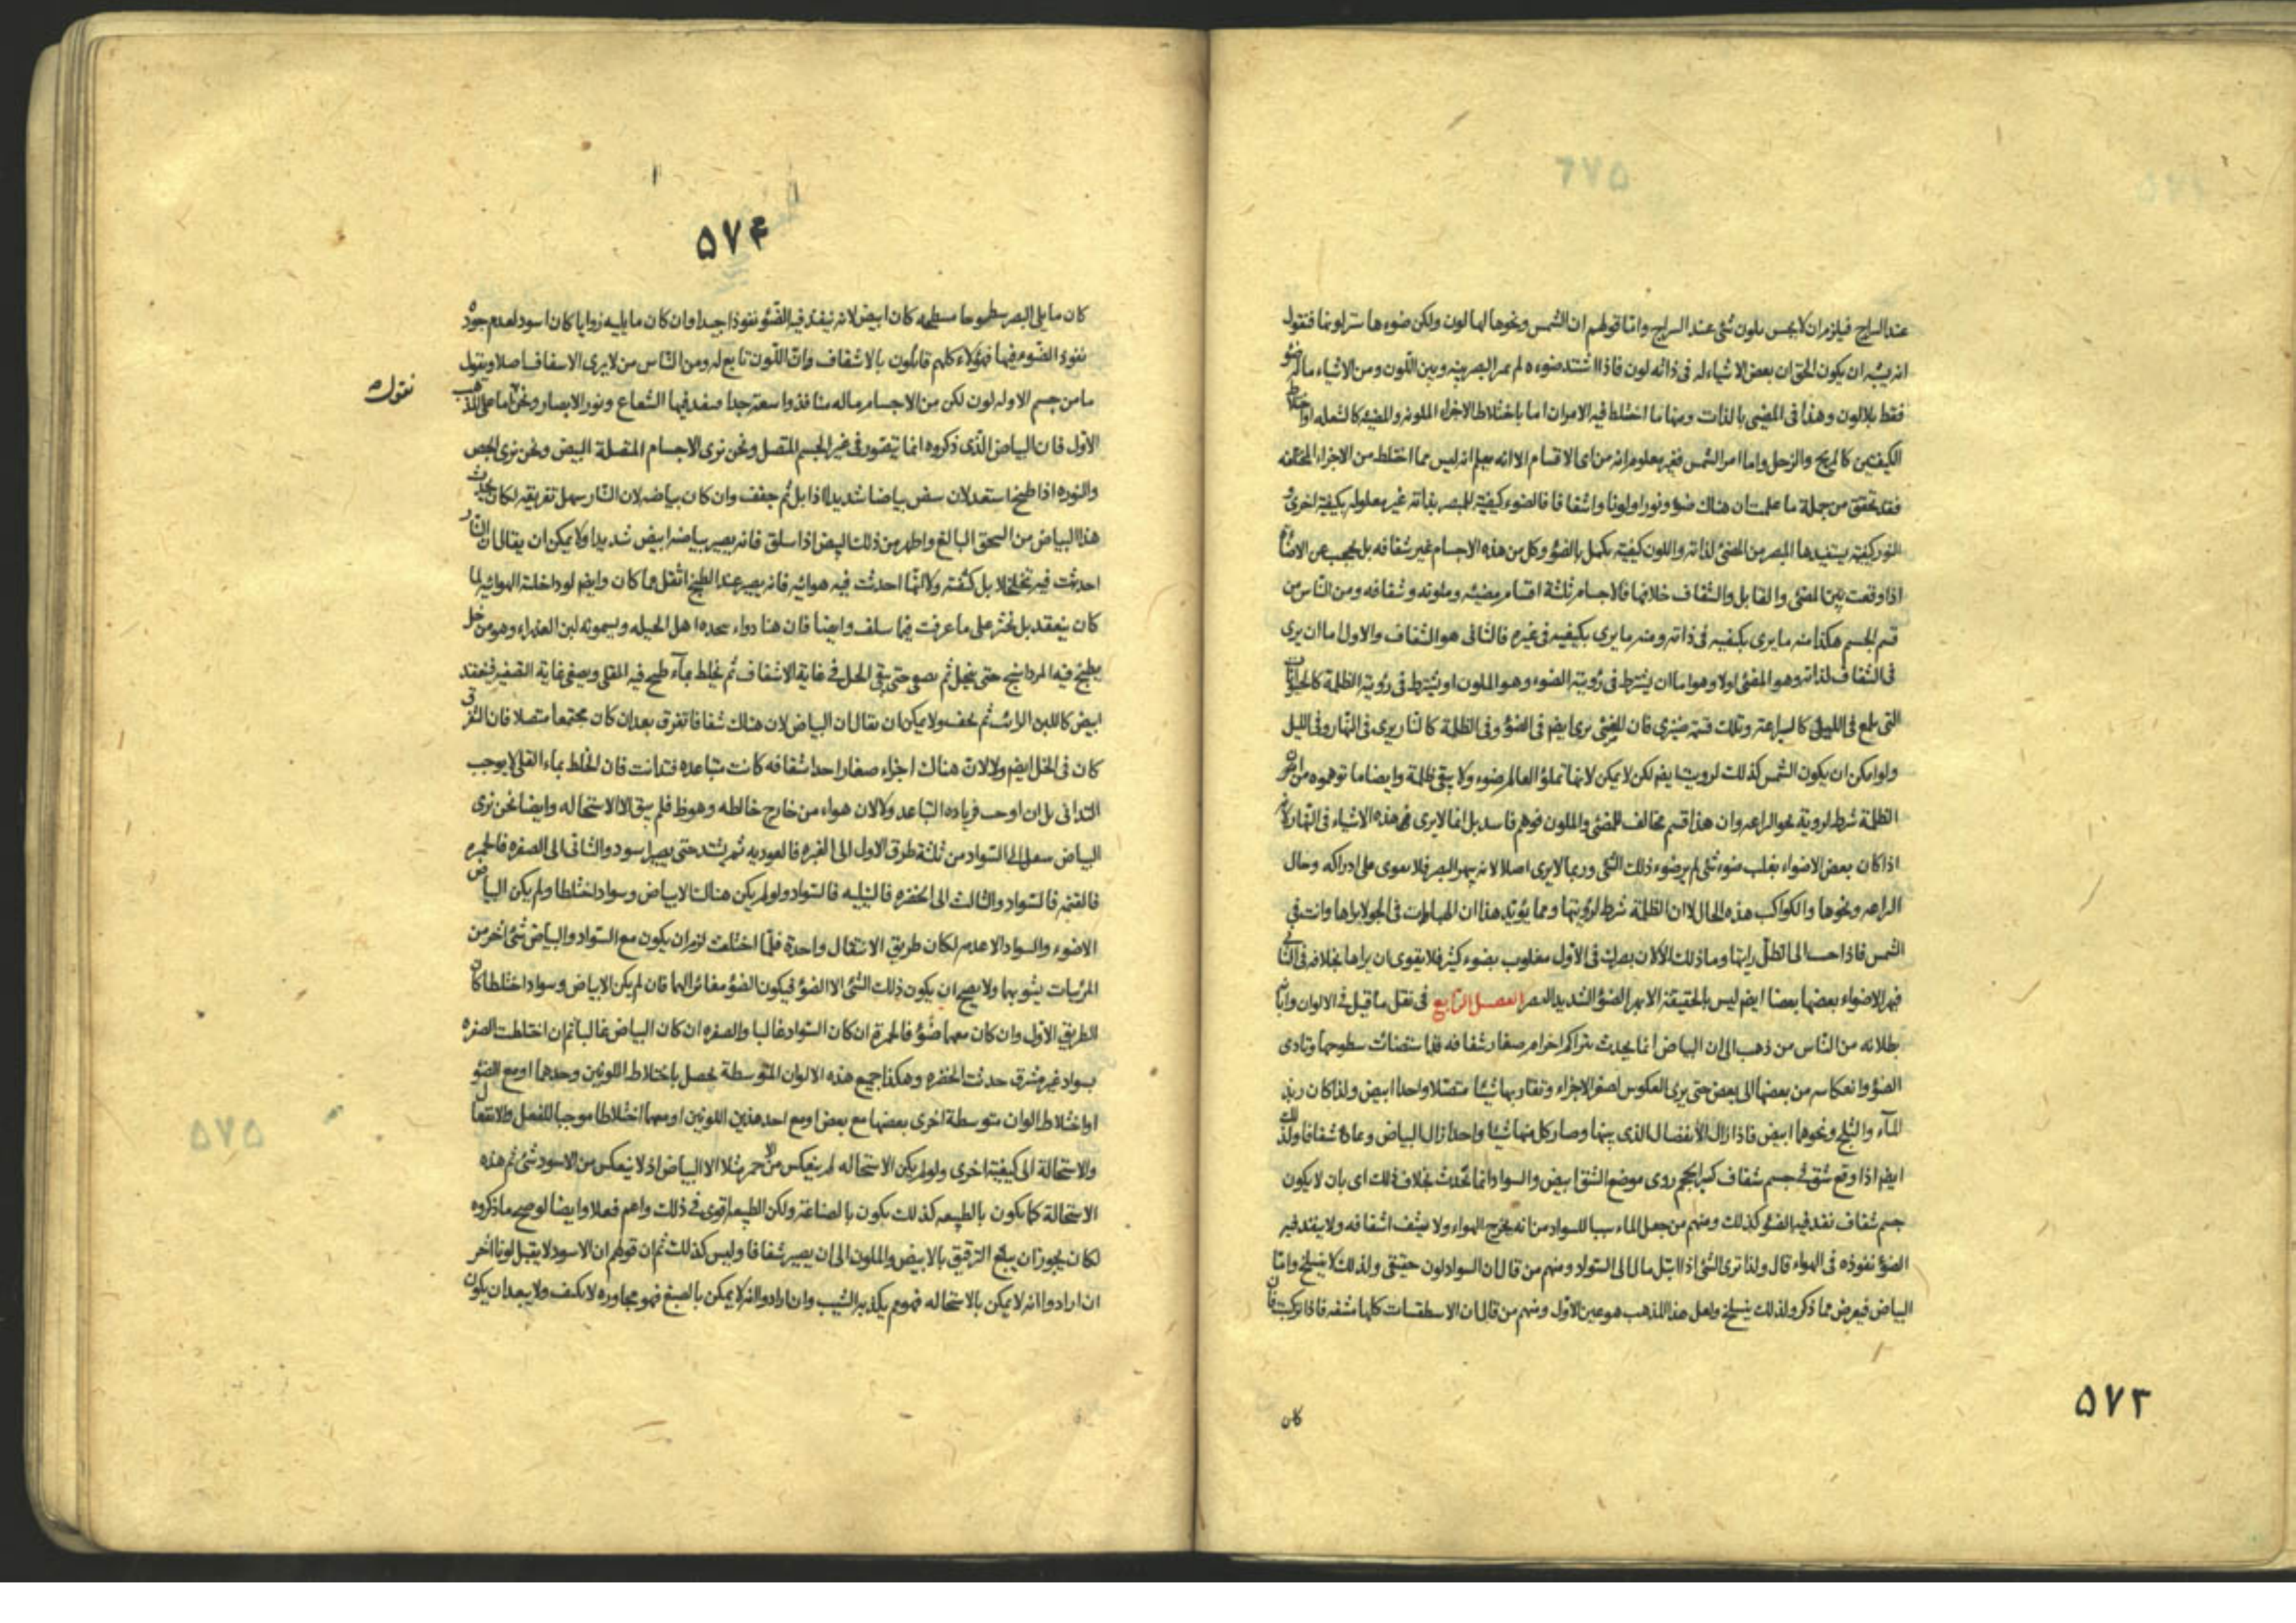 عند السراج فيلزم ان لا يحس بلون شئ عند السراج واما قولهم ان الشمس ونحوها لها لون ولكن ضوءها ستر لونها فنقول
انه يشبه ان يكون الحق ان بعض الاشياء له فى ذاته لون فاذا اشتد ضوءه لم يميز البصر بينه وبين اللون ومن الاشياء ماله ضوء
فقط بلا لون وهذا فى المضيئ بالذات ومنها ما اختلط فيه الامران اما باختلاط الاجزاء الملونه والمضيئه كالشعله او اختلاط
الكيفيتين كالمريخ والزحل واما امر الشمس فغير معلوم انه من اى الاقسام الا انه يعلم انه ليس مما اختلط من الاجزاء المختلفه
فقد تحقق من جملة ما علمت ان هناك ضوء ونورا ولونا واشفافا فالضوء كيفية للمبصر بذاته غير معلوله بكيفية اخرى و
النور كيفيه يستفيدها المبصر من المضئ لذاته واللون كيفية يكمل بالضوء وكل من هذه الاجسام غير شفافه بل يحجب عن الاضاءه
اذا وقعت بين المضئ والمقابل والشفاف خلافها فالاجسام ثلثة اقسام مضيئه وملونه وشفافه ومن الناس من
قسم الجسم هكذا منه ما يرى بكيفيه فى ذاته ومنه ما يرى بكيفيه فى غيره فالثانى هو الشفاف والاول اما ان يرى
فى الشفاف لذاته وهو المضئ اولا وهو اما ان يشترط فى رؤية الضوء وهو الملون او يشترط فى رؤيته الظلمة كالحيوانات
التى يلمع فى الليل كاليراعة وتلك قسمة ضيزى فان المضئ يرى ايضم فى الضوء وفى الظلمة كالنار يرى فى النهار وفى الليل
ولو امكن ان يكون الشمس كذلك لرويت ايضم لكن لا يمكن لانها تملؤ العالم ضوء ولا يبقى ظلمة وايضا ما توهموه من امر
الظلمة شرط لروية نحو اليراعه وان هذا قسم مخالف للمضئ والملون فوهم فاسد بل انما لا يرى هذه الاشياء فى النهار لانه
اذا كان بعض الاضواء يغلب ضوء شئ لم ير ضوء ذلك الشئ وربما لا يرى اصلا لانه يبهر البصر فلا يقوى على ادراكه وحال
اليراعه ونحوها والكواكب هذه الحال لا ان الظلمة شرط لرؤيتها ومما يؤيد هذا ان الهباءات فى الجو لا يراها وانت فى
الشمس فاذا جئت الى الظل رايتها وما ذلك الا لان بصرك فى الاول مغلوب بضوء كثير فلا يقوى ان يراها بخلافه فى الثانى
فبهر الاضواء بعضها بعضا ايضم ليس بالحقيقة الا بهر الضوء الشديد البصر الفصل الرابع فى نقل ما قيل فى الالوان واثبات
بطلانه من الناس من ذهب الى ان البياض انما يحدث بتراكم اجرام صغار شفافه فلما ستضائت سطوحها وتادى
الضوء وانعكاسه من بعضها الى بعض حتى يرى العكوس لصغر الاجزاء وتقاربها شيئا متصلا واحدا ابيض ولذا كان زبد
المآء والثلج ونحوهما ابيض فاذا زال الانفصال الذى بينها وصار كل منها شيئا واحدا زال البياض وعاد شفافا ولذلك
ايضم اذا وقع شق فى جسم شفاف كبير الحجم روى موضع الشق ابيض والسواد انما تحدث بخلاف ذلك اى بان لا يكون
جسم شفاف نفد فيه الضوء كذلك ومنهم من جعل الماء سببا للسواد من انه يخرج الهواء ولا يشف اشفافه ولا ينفد فيه
الضوء نفوذه فى الهواء قال ولذا نرى الشئ اذا ابتل مال الى السواد ومنهم من قال ان السواد لون حقيقى ولذلك لا ينسلخ واما
البياض فيعرض مما ذكر ولذلك ينسلخ ولعل هذا المذهب هو عين الاول ومنهم من قال ان الاسطقسات كلها مشفه فاذا تركبت فان
كان
٥٧٣
٥٧٤
كان ما يلى البصر سطوحا مسطحه كان ابيض لانه ينفد فيه الضوء نفوذا جيدا وان كان ما يليه زوايا كان اسود لعدم جوده
نفوذ الضوء فيها فهؤلاء كلهم قائلون بالاشفاف وان اللون تابع له ومن الناس من لا يرى الاسفاف اصلا ويقول
ما من جسم الا وله لون لكن من الاجسام ماله منافذ واسعة جدا ينفد فيها الشعاع ونور الابصار ونحن اما على المذهب
نقول
الاول فان البياض الذى ذكروه انما يتصور فى غير الجسم المتصل ونحن نرى الاجسام المتصلة البيض ونحن نرى الجص
والنوره اذا طبخا استعد لان يبيض بياضا شديدا اذا بل ثم جفف وان كان بياضه لان النار سهل تفريقه لكان يحدث
هذا البياض من السحق البالغ واظهر من ذلك البيض اذا سلق فانه يصير بياضه ابيض شديدا ولا يمكن ان يقال ان النار
احدثت فيه تخلخلا بل كثفته ولا انها احدثت فيه هوائيه فانه يصير عند الطبخ اثقل مما كان وايضم لو داخلته الهوائيه لما
كان ينعقد بل يخثر على ما عرفت فيما سلف وايضا فان هنا دواء يتخذه اهل الحيله ويسمونه لبن العذراء وهو من خل
يطبخ فيه المرداسنج حتى ينحل ثم يصفى حتى يبقى الخل فى غاية الاشفاف ثم يخلط بمآء طبخ فيه القلى ويصفى غاية التصفيه فينعقد
ابيض كاللبن الرائب ثم يجف ولا يمكن ان يقال ان البياض لان هناك شفافا تفرق بعد ان كان مجتمعا متصلا فان التفرق
كان فى الخل ايضم ولا لان هناك اجزاء صغارا جدا شفافه كانت متباعده فتدانت فان الخلط بماء القلى لا يوجب
التدانى بل ان اوجب فزياده التباعد ولا لان هواء من خارج خالطه وهو ظ فلم يبق الا الاستحاله وايضا نحن نرى
البياض ينتقل الى السواد من ثلثة طرق الاول الى الغبره فالعوديه ثم يشتد حتى يصير اسود والثانى الى الصفره فالحمره
فالقتمه فالسواد والثالث الى الخضره فالنيليه فالسواد ولو لم يكن هناك الا بياض وسواد اختلطا ولم يكن البياض
الا ضوء والسواد الا عدمه لكان طريق الانتقال واحدة فلما اختلفت لزم ان يكون مع السواد والبياض شئ اخر من
المرئيات يشوبهما ولا يصح ان يكون ذلك الشئ الا الضوء فيكون الضوء مغائرا لهما فان لم يكن الا بياض وسواد اختلطا كان
الطريق الاول وان كان معهما ضوء فالحمرة ان كان السواد غالبا والصفره ان كان البياض غالبا ثم ان اختلطت الصفره
بسواد غير مشرق حدثت الخضره وهكذا جميع هذه الالوان المتوسطة يحصل باختلاط اللونين وحدهما او مع الضوء
او اختلاط الوان متوسطة اخرى بعضها مع بعض او مع احد هذين اللونين او معهما اختلاطا موجبا للفعل والانفعال
والاستحالة الى كيفية اخرى ولو لم يكن الاستحاله لم ينعكس من الاحمر مثلا الا البياض اذ لا ينعكس من الاسود شئ ثم هذه
الاستحالة كما يكون بالطبيعه كذلك يكون بالصناعة ولكن الطبيعة اقوى فى ذلك واهم فعلا وايضا لو صح ما ذكروه
لكان يجوز ان يبلغ الترقيق بالابيض والملون الى ان يصير شفافا وليس كذلك ثم ان قولهم ان الاسود لا يقبل لونا آخر
ان ارادوا انه لا يمكن بالاستحاله فهو مم يكذبه الشيب وان ارادوا انه لا يمكن بالصبغ فهو مجاوره لا تكيف ولا يبعد ان يكون